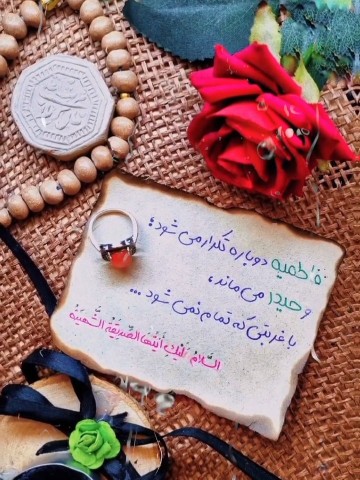 فاطمیه دوباره تکرار می شود؛
و حیدر می ماند،
با غربتی که تمام نمی شود ...
السَّلامُ عَلَیْکِ أَیَّتُهَا الصِّدِّیقَةُ الشَّهِیدَةُ